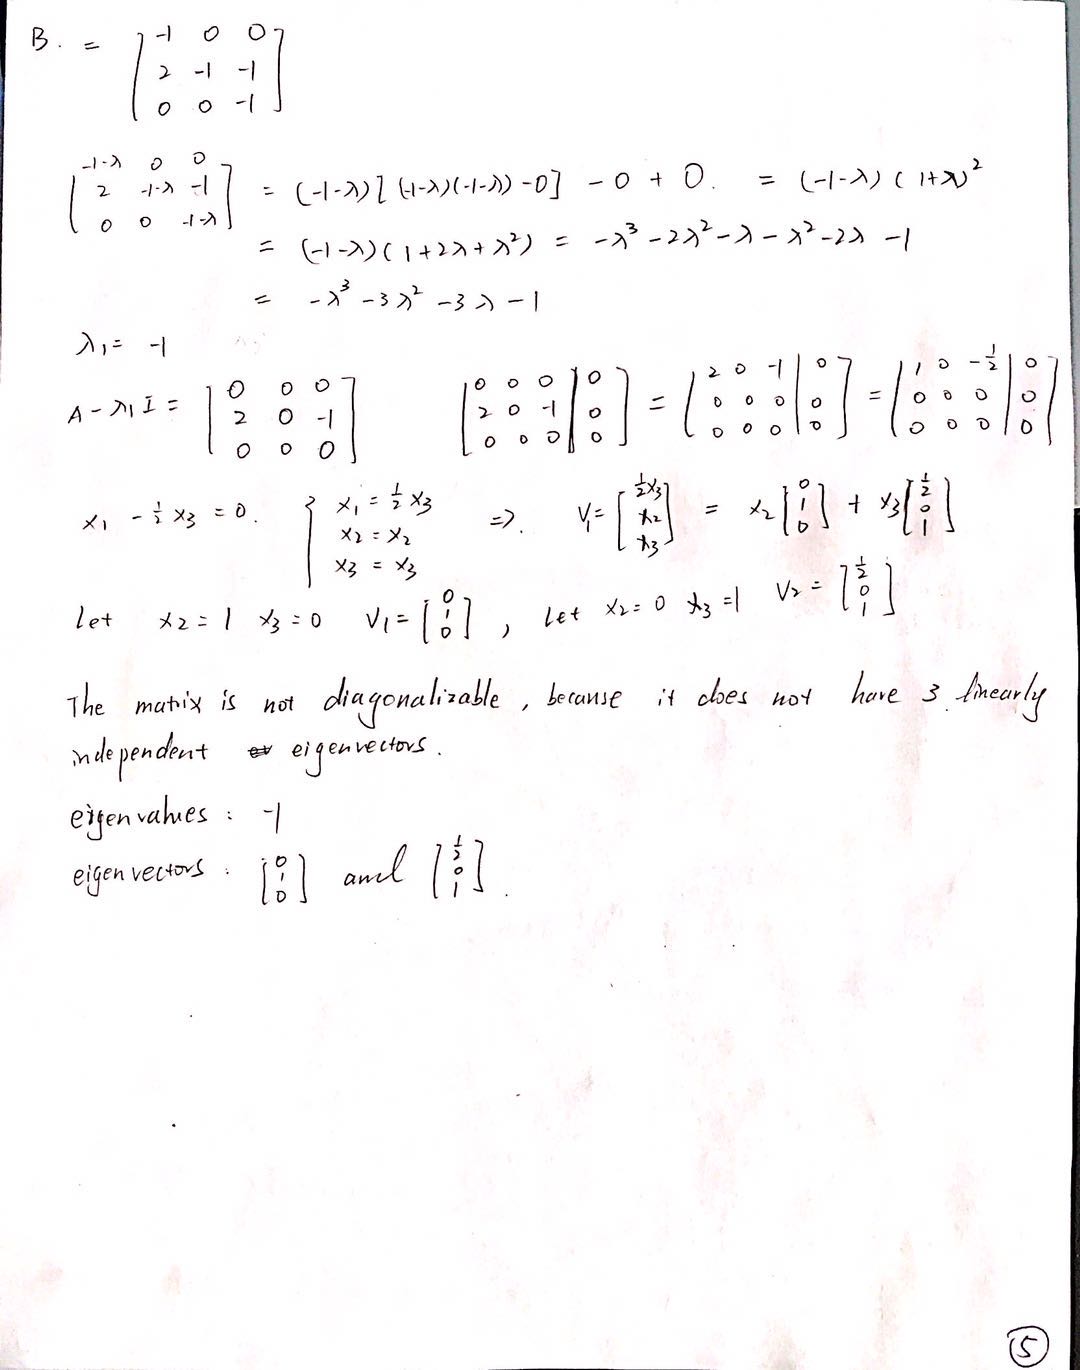 B. = [-1 0 0; 2 -1 -1; 0 0 -1]
[-1-λ 0 0; 2 -1-λ -1; 0 0 -1-λ] = (-1-λ)[(-1-λ)(-1-λ)-0] - 0 + 0. = (-1-λ)(1+λ)²
= (-1-λ)(1+2λ+λ²) = -λ³-2λ²-λ-λ²-2λ-1
= -λ³-3λ²-3λ-1
λ₁= -1
A-λ₁I = [0 0 0; 2 0 -1; 0 0 0] [0 0 0 | 0; 2 0 -1 | 0; 0 0 0 | 0] = [2 0 -1 | 0; 0 0 0 | 0; 0 0 0 | 0] = [1 0 -½ | 0; 0 0 0 | 0; 0 0 0 | 0]
x₁ - ½x₃ = 0. { x₁ = ½x₃; x₂ = x₂; x₃ = x₃ ⇒. V₁ = [½x₃; x₂; x₃] = x₂[0; 1; 0] + x₃[½; 0; 1]
let x₂ = 1 x₃ = 0 V₁ = [0; 1; 0], Let x₂ = 0 x₃ = 1 V₂ = [½; 0; 1]
The matrix is not diagonalizable, because it does not have 3 linearly
independent eigenvectors.
eigenvalues : -1
eigenvectors : [0; 1; 0] and [½; 0; 1].
5